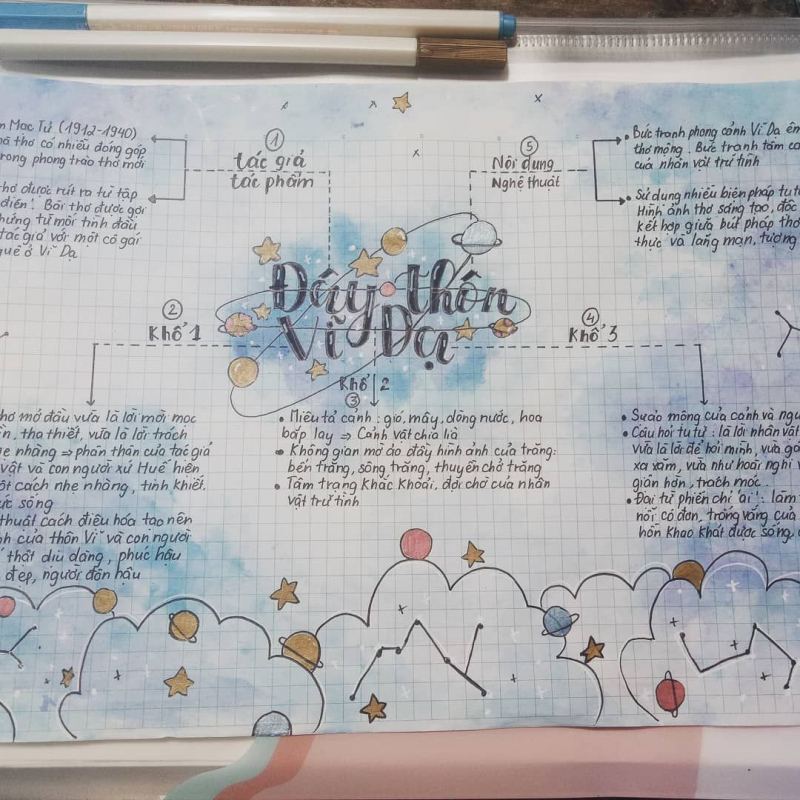 Đây thôn
Vĩ Dạ
①
tác giả
tác phẩm
Mạc Tử (1912-1940)
thơ có nhiều đóng góp
trong phong trào thơ mới
thơ được rút ra từ tập
điên". Bài thơ được gợi
hứng từ mối tình đầu
tác giả với một cô gái
quê ở Vĩ Dạ
②
Khổ 1
mở đầu vừa là lời mời mọc
tha thiết, vừa là lời trách
nhẹ nhàng ⇒ phân thân của tác giả
vật và con người xứ Huế hiện
một cách nhẹ nhàng, tinh khiết.
sống
thuật cách điệu hóa tạo nên
của thôn Vĩ và con người
thật dịu dàng, phúc hậu
đẹp, người đôn hậu
Khổ 2
③
• Miêu tả cảnh : gió, mây, dòng nước, hoa
bắp lay ⇒ Cảnh vật chia lìa
• Không gian mờ ảo đầy hình ảnh của trăng:
bến trăng, sông trăng, thuyền chở trăng
• Tâm trạng khắc khoải, đợi chờ của nhân
vật trữ tình
④
Khổ 3
• Sự ảo mộng của cảnh và
• Câu hỏi tu từ : là lời nhân vật
vừa là lời để hỏi mình, vừa
xa xăm, vừa như hoài nghi
giận hờn, trách móc.
• Đại từ phiếm chỉ "ai" : làm
nỗi cô đơn, trống vắng của
hồn khao khát được sống,
⑤
Nội dung
Nghệ thuật
• Bức tranh phong cảnh Vĩ Dạ
thơ mộng. Bức tranh tâm
của nhân vật trữ tình
• Sử dụng nhiều biện pháp tu từ
Hình ảnh thơ sáng tạo,
kết hợp giữa bút pháp
thực và lãng mạn, tượng